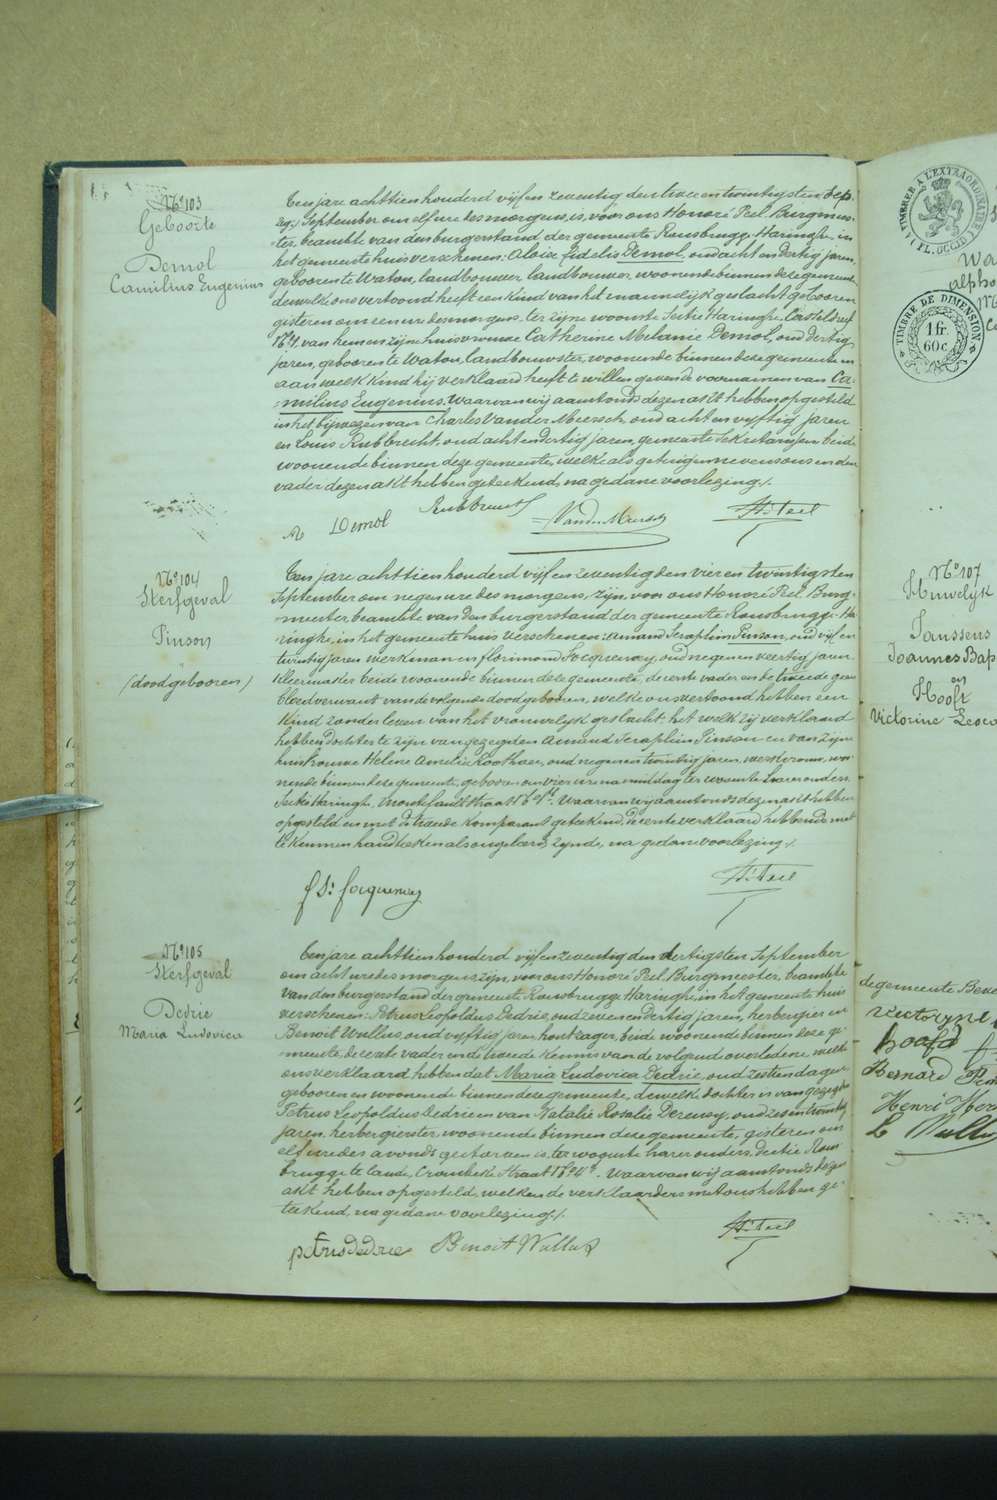 N° 103
Geboorte
Demol
Camilius Eugenius
Een jare achttien honderd vijf en zeventig den twee en twintigsten Sep-
September om elf ure des morgens, is, voor ons Honoré Peel Burgmees-
ter, beambte van den burgerstand der gemeente Rousbrugge-Haringhe, in
het gemeentehuis verschenen: Aloïs fidelis Demol, oud acht en dertig jaren,
geboren te Watou, landbouwer, landbouwer, woonende binnen deze gemeente,
dewelke ons vertoond heeft een kind van het mannelijk geslacht, gebooren
gisteren om een ure des morgens, ter zijne woonste Sectie Haringhe, Casteldreef
N° 1, van hem en zijne huisvrouwe Catherine Melanie Demol, oud dertig
jaren, geboren te Watou, landbouwster, woonende binnen deze gemeente en
aan welk kind hij verklaard heeft te willen geven de voornamen van Ca-
milius Eugenius. Waarvan wij aanstonds dezen akt hebben opgesteld
in het bijwezen van Charles Vander Meersch, oud acht en vijftig jaren
en Louis Rubbrecht, oud acht en dertig jaren, gemeente Sekretaris, en beide
woonende binnen deze gemeente, welke als getuigen nevens ons en den
vader dezen akt hebben geteekend, na gedane voorlezing ./.
A Demol Rubbrecht Vander Meersch H. Peel
N° 104
Sterfgeval
Pinson
(doodgebooren)
Een jare achttien honderd vijf en zeventig den vier en twintigsten
September om negen ure des morgens, zijn, voor ons Honoré Peel Burg-
meester beambte van den burgerstand der gemeente Rousbrugge-Ha-
ringhe, in het gemeentehuis verschenen: Amand Seraphin Pinson, oud vijf en
twintig jaren werkman en florimond Focquenoey, oud negen en veertig jaren,
kleermaker beide woonende binnen deze gemeente, de eerste vader en de tweede geen
bloedverwant van de volgende doodgebooren, welke ons vertoond hebben een
kind zonder leven van het vrouwelijk geslacht, het welk zij verklaard
hebben dochter te zijn van gezegden Amand Seraphin Pinson en van zijne
huisvrouwe Helene Amelie Roothaer, oud negen en twintig jaren, werkvrouw, woo-
nende binnen deze gemeente, geboren om vier ure namiddag ter woonste harer ouders,
Sectie Haringhe, straat N° 9. Waarvan wij aanstonds dezen akt hebben
opgesteld en met de tweede komparant geteekend, de eerste verklaard hebbende niet
te kunnen handteekenen als ongeleerd zijnde, na gedane voorlezing ./.
H. Peel
N° 105
Sterfgeval
Dedrie
Maria Ludovica
Een jare achttien honderd vijf en zeventig den dertigsten September
om acht ure des morgens zijn, voor ons Honoré Peel, Burgmeester, beambte
van den burgerstand der gemeente Rousbrugge Haringhe, in het gemeente huis
verschenen: Petrus Leopoldus Dedrie, oud zeven en dertig jaren, herbergier en
Benoit Wullus, oud vijftig jaren, houtzager, beide woonende binnen deze ge-
meente, de eerste vader en de tweede kennis van de volgende overledene, welke
ons verklaard hebben dat Maria Ludovica Dedrie, oud zestien dagen
geboren en woonende binnen deze gemeente, dewelke dochter is van gezegden
Petrus Leopoldus Dedrie en van Natalie Rosalie oud zes en twintig
jaren, herbergierster, woonende binnen deze gemeente, gisteren om
elf ure des avonds gestorven is, ter woonste harer ouders, Sectie Rous-
brugge te lande, Crombeke Straat N° 24. Waarvan wij aanstonds dezen
akt hebben opgesteld, welken de verklaarders met ons hebben ge-
teekend, na gedane voorlezing ./.
petrus dedrie Benoit Wullus H. Peel
TIMBRE A L'EXTRAORDINAIRE
FL. OCCID
TIMBRE DE DIMENSION
1 fr.
60 c.
Wa
alpho
N° 107
Huwelijk
Janssens
Joannes Bap
en
Hooft
Victorine Leoca
de gemeente Beve
victorine
hoofd
Bernard
Henri